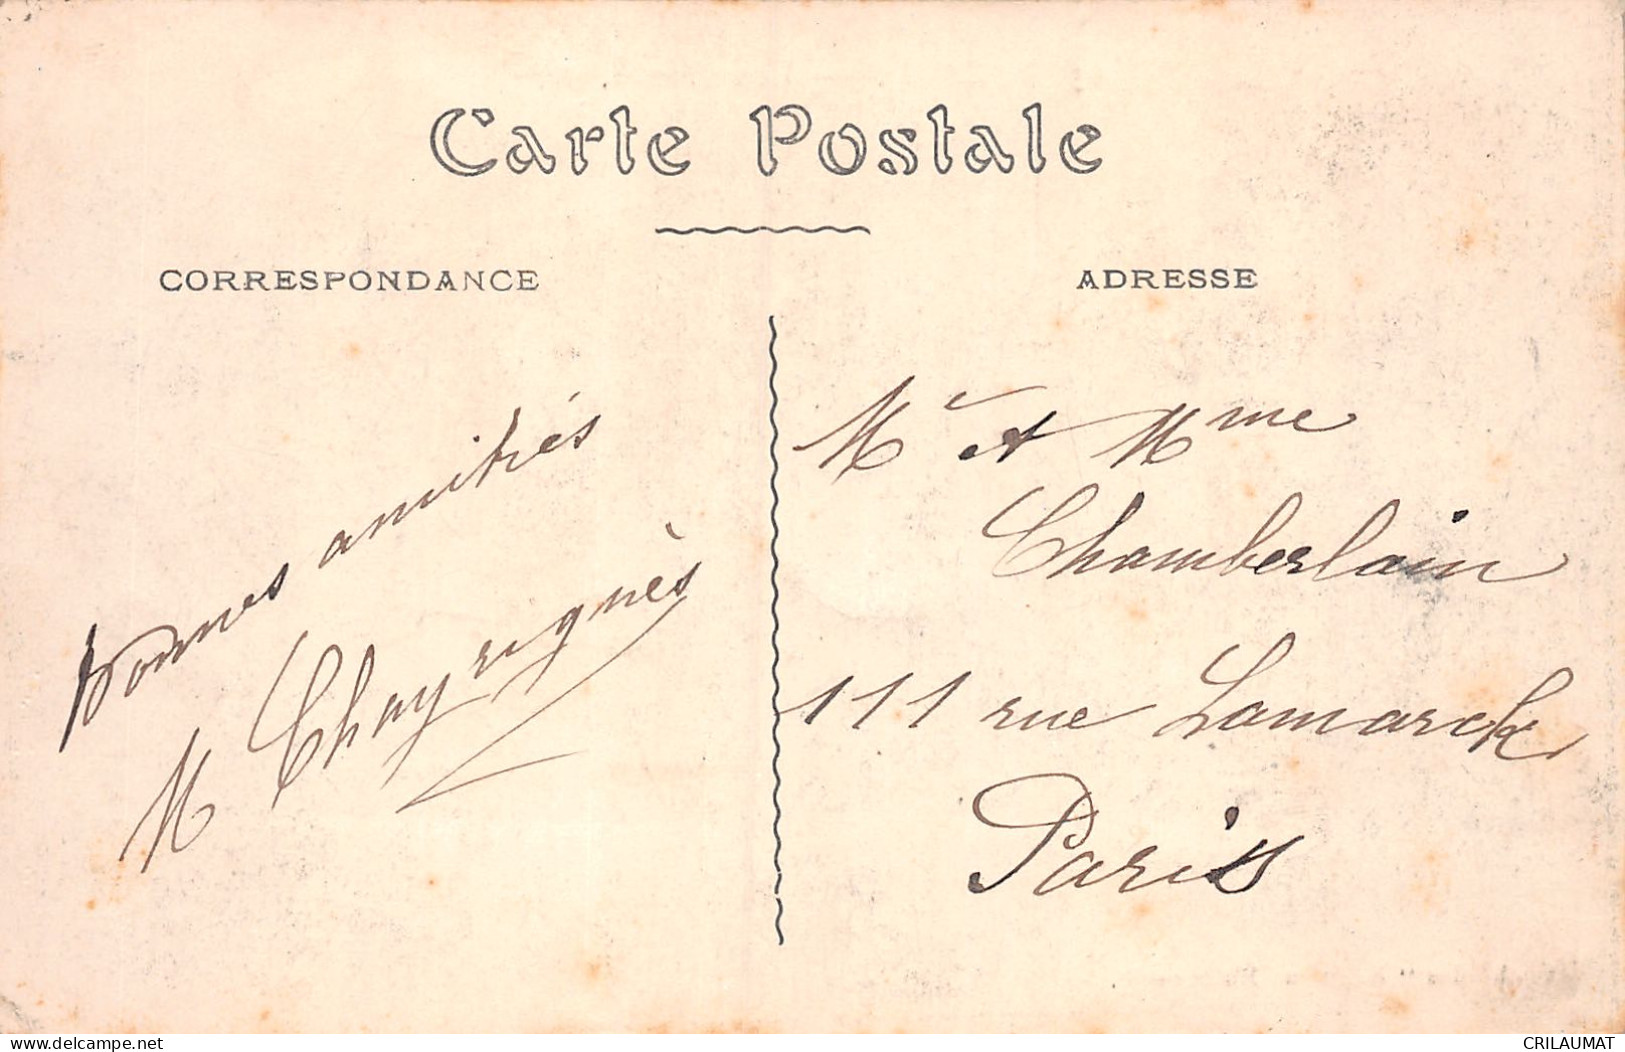 Carte Postale
CORRESPONDANCE
ADRESSE
Bonnes amitiés
M Chayrignès
Mr et Mme
Chamberlain
111 rue Lamarck
Paris
www.delcampe.net
CRILAUMAT